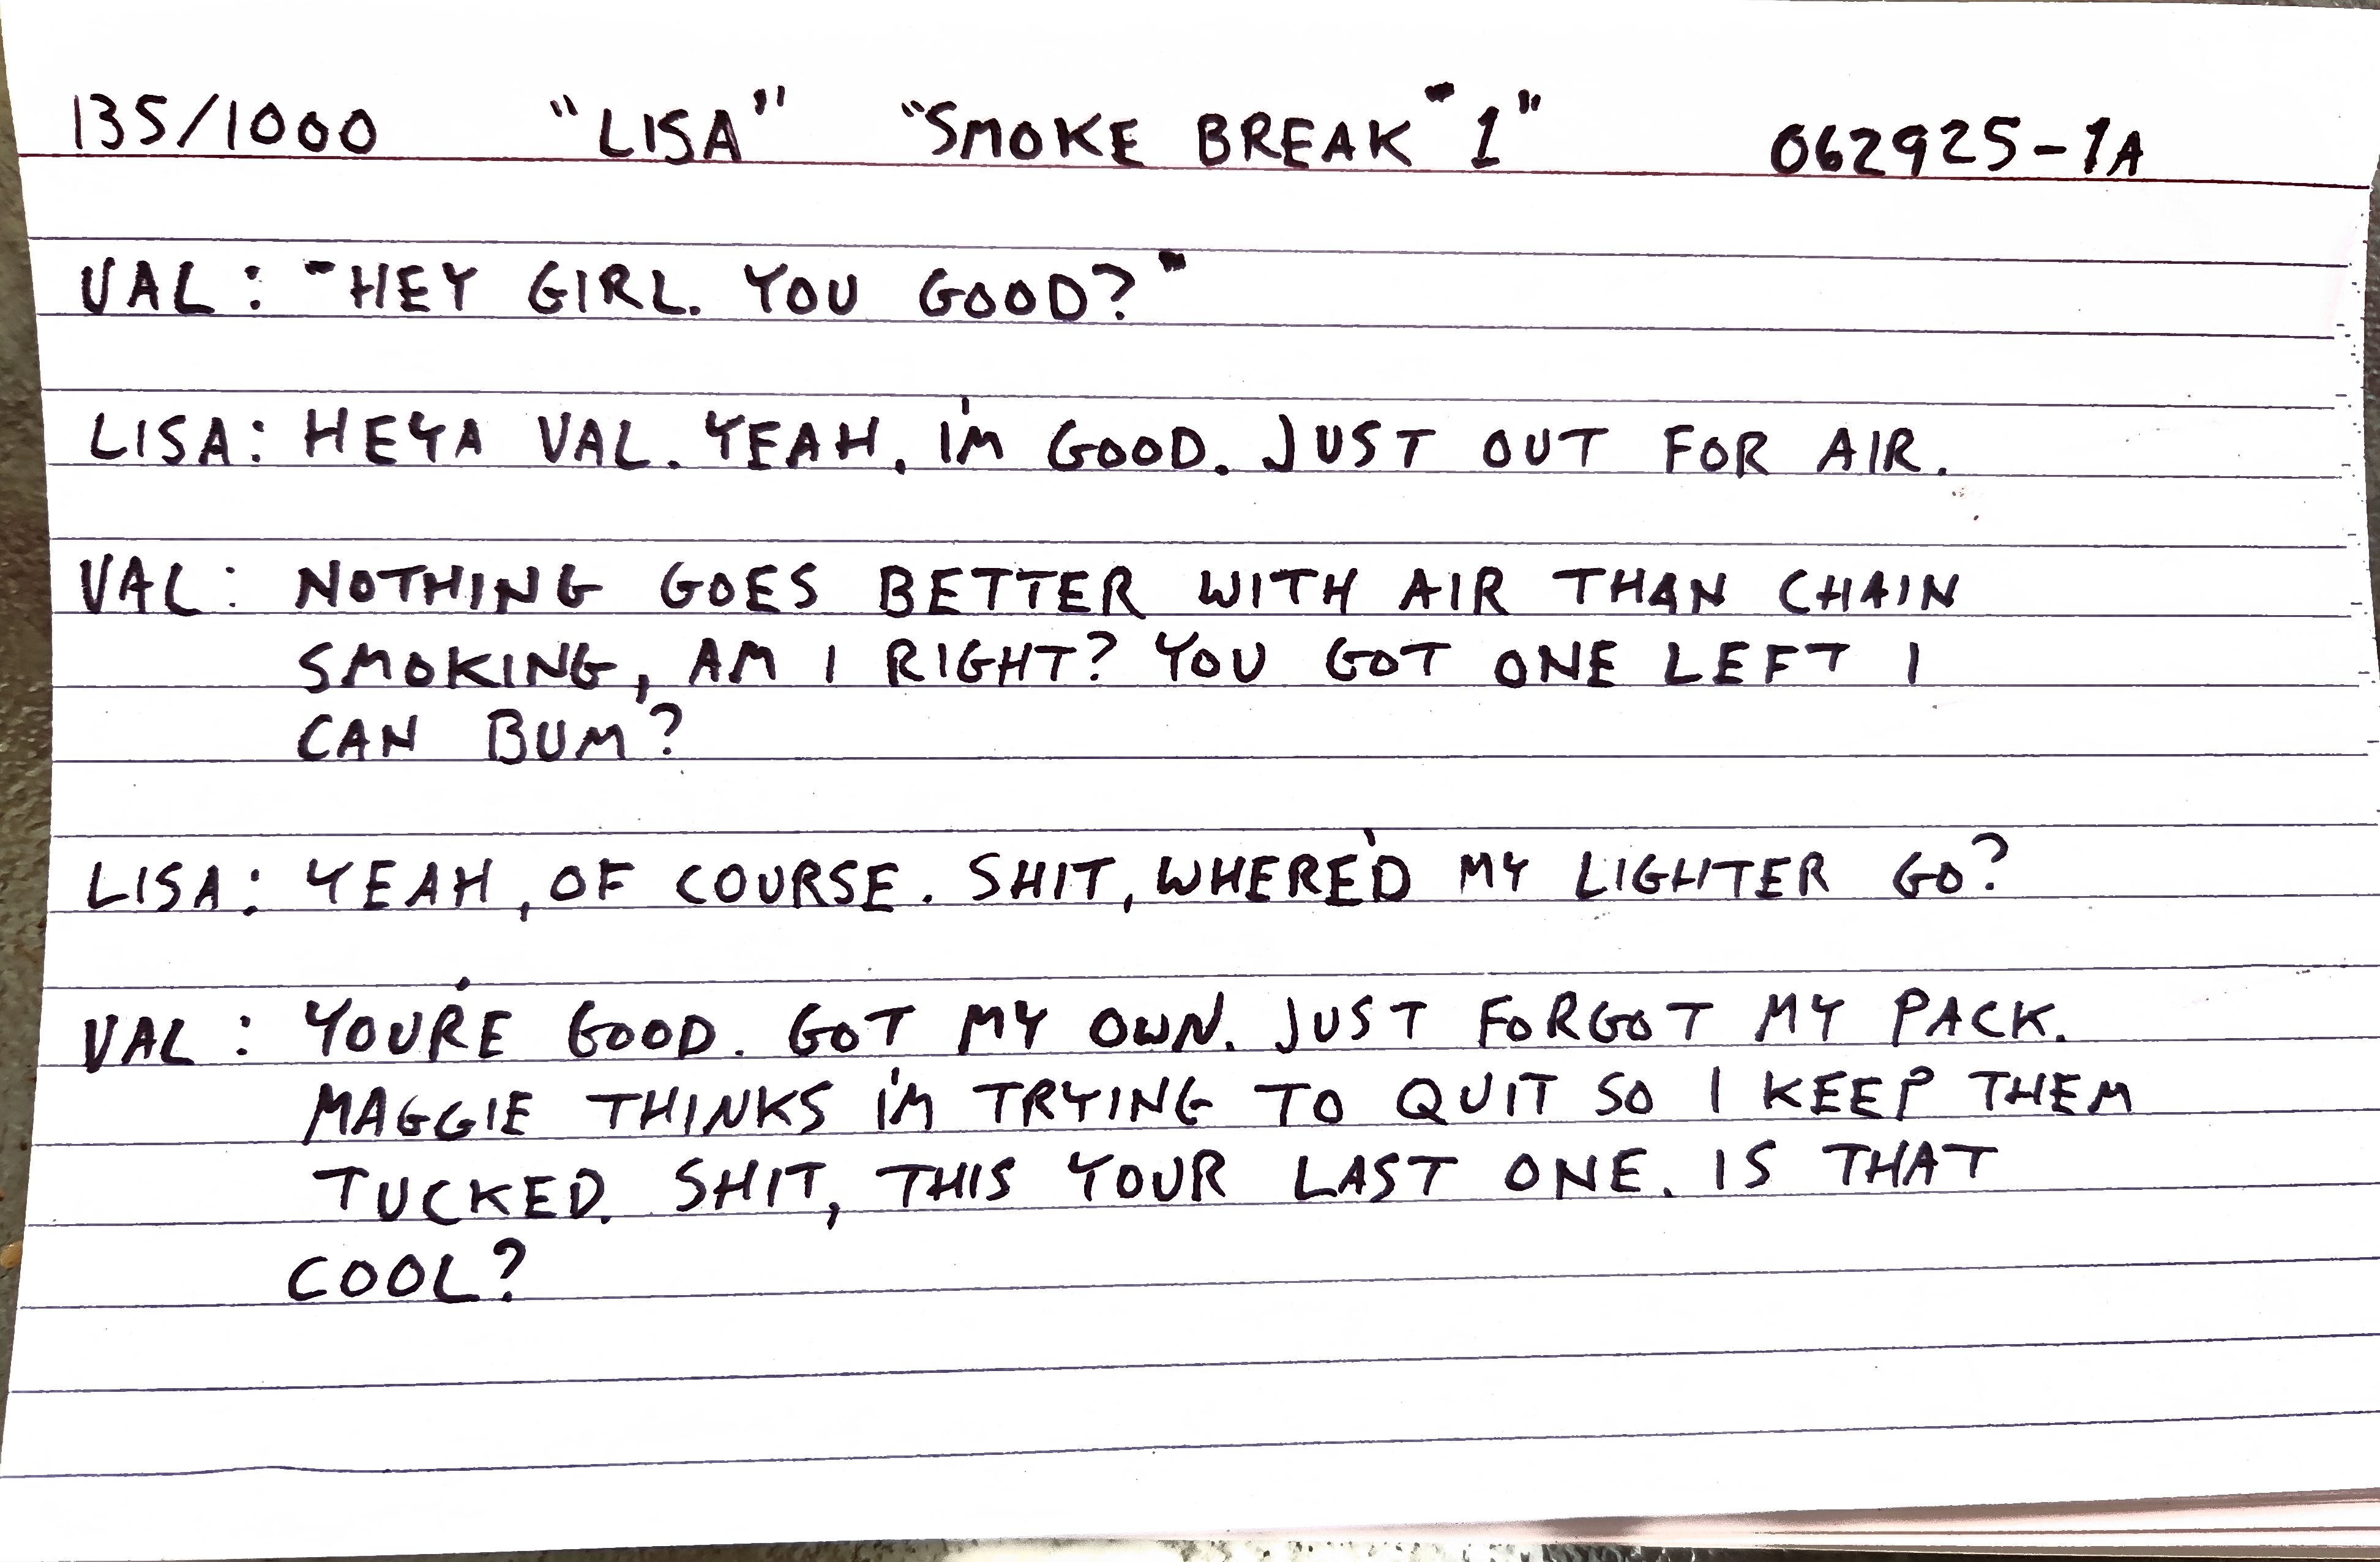 135/1000 "LISA" "SMOKE BREAK" 1" 062925-1A
VAL: "HEY GIRL. YOU GOOD?"
LISA: HEYA VAL. YEAH. I'M GOOD. JUST OUT FOR AIR.
VAL: NOTHING GOES BETTER WITH AIR THAN CHAIN
SMOKING, AM I RIGHT? YOU GOT ONE LEFT I
CAN BUM?
LISA: YEAH, OF COURSE. SHIT, WHERE'D MY LIGHTER GO?
VAL: YOU'RE GOOD. GOT MY OWN. JUST FORGOT MY PACK.
MAGGIE THINKS I'M TRYING TO QUIT SO I KEEP THEM
TUCKED. SHIT, THIS YOUR LAST ONE. IS THAT
COOL?